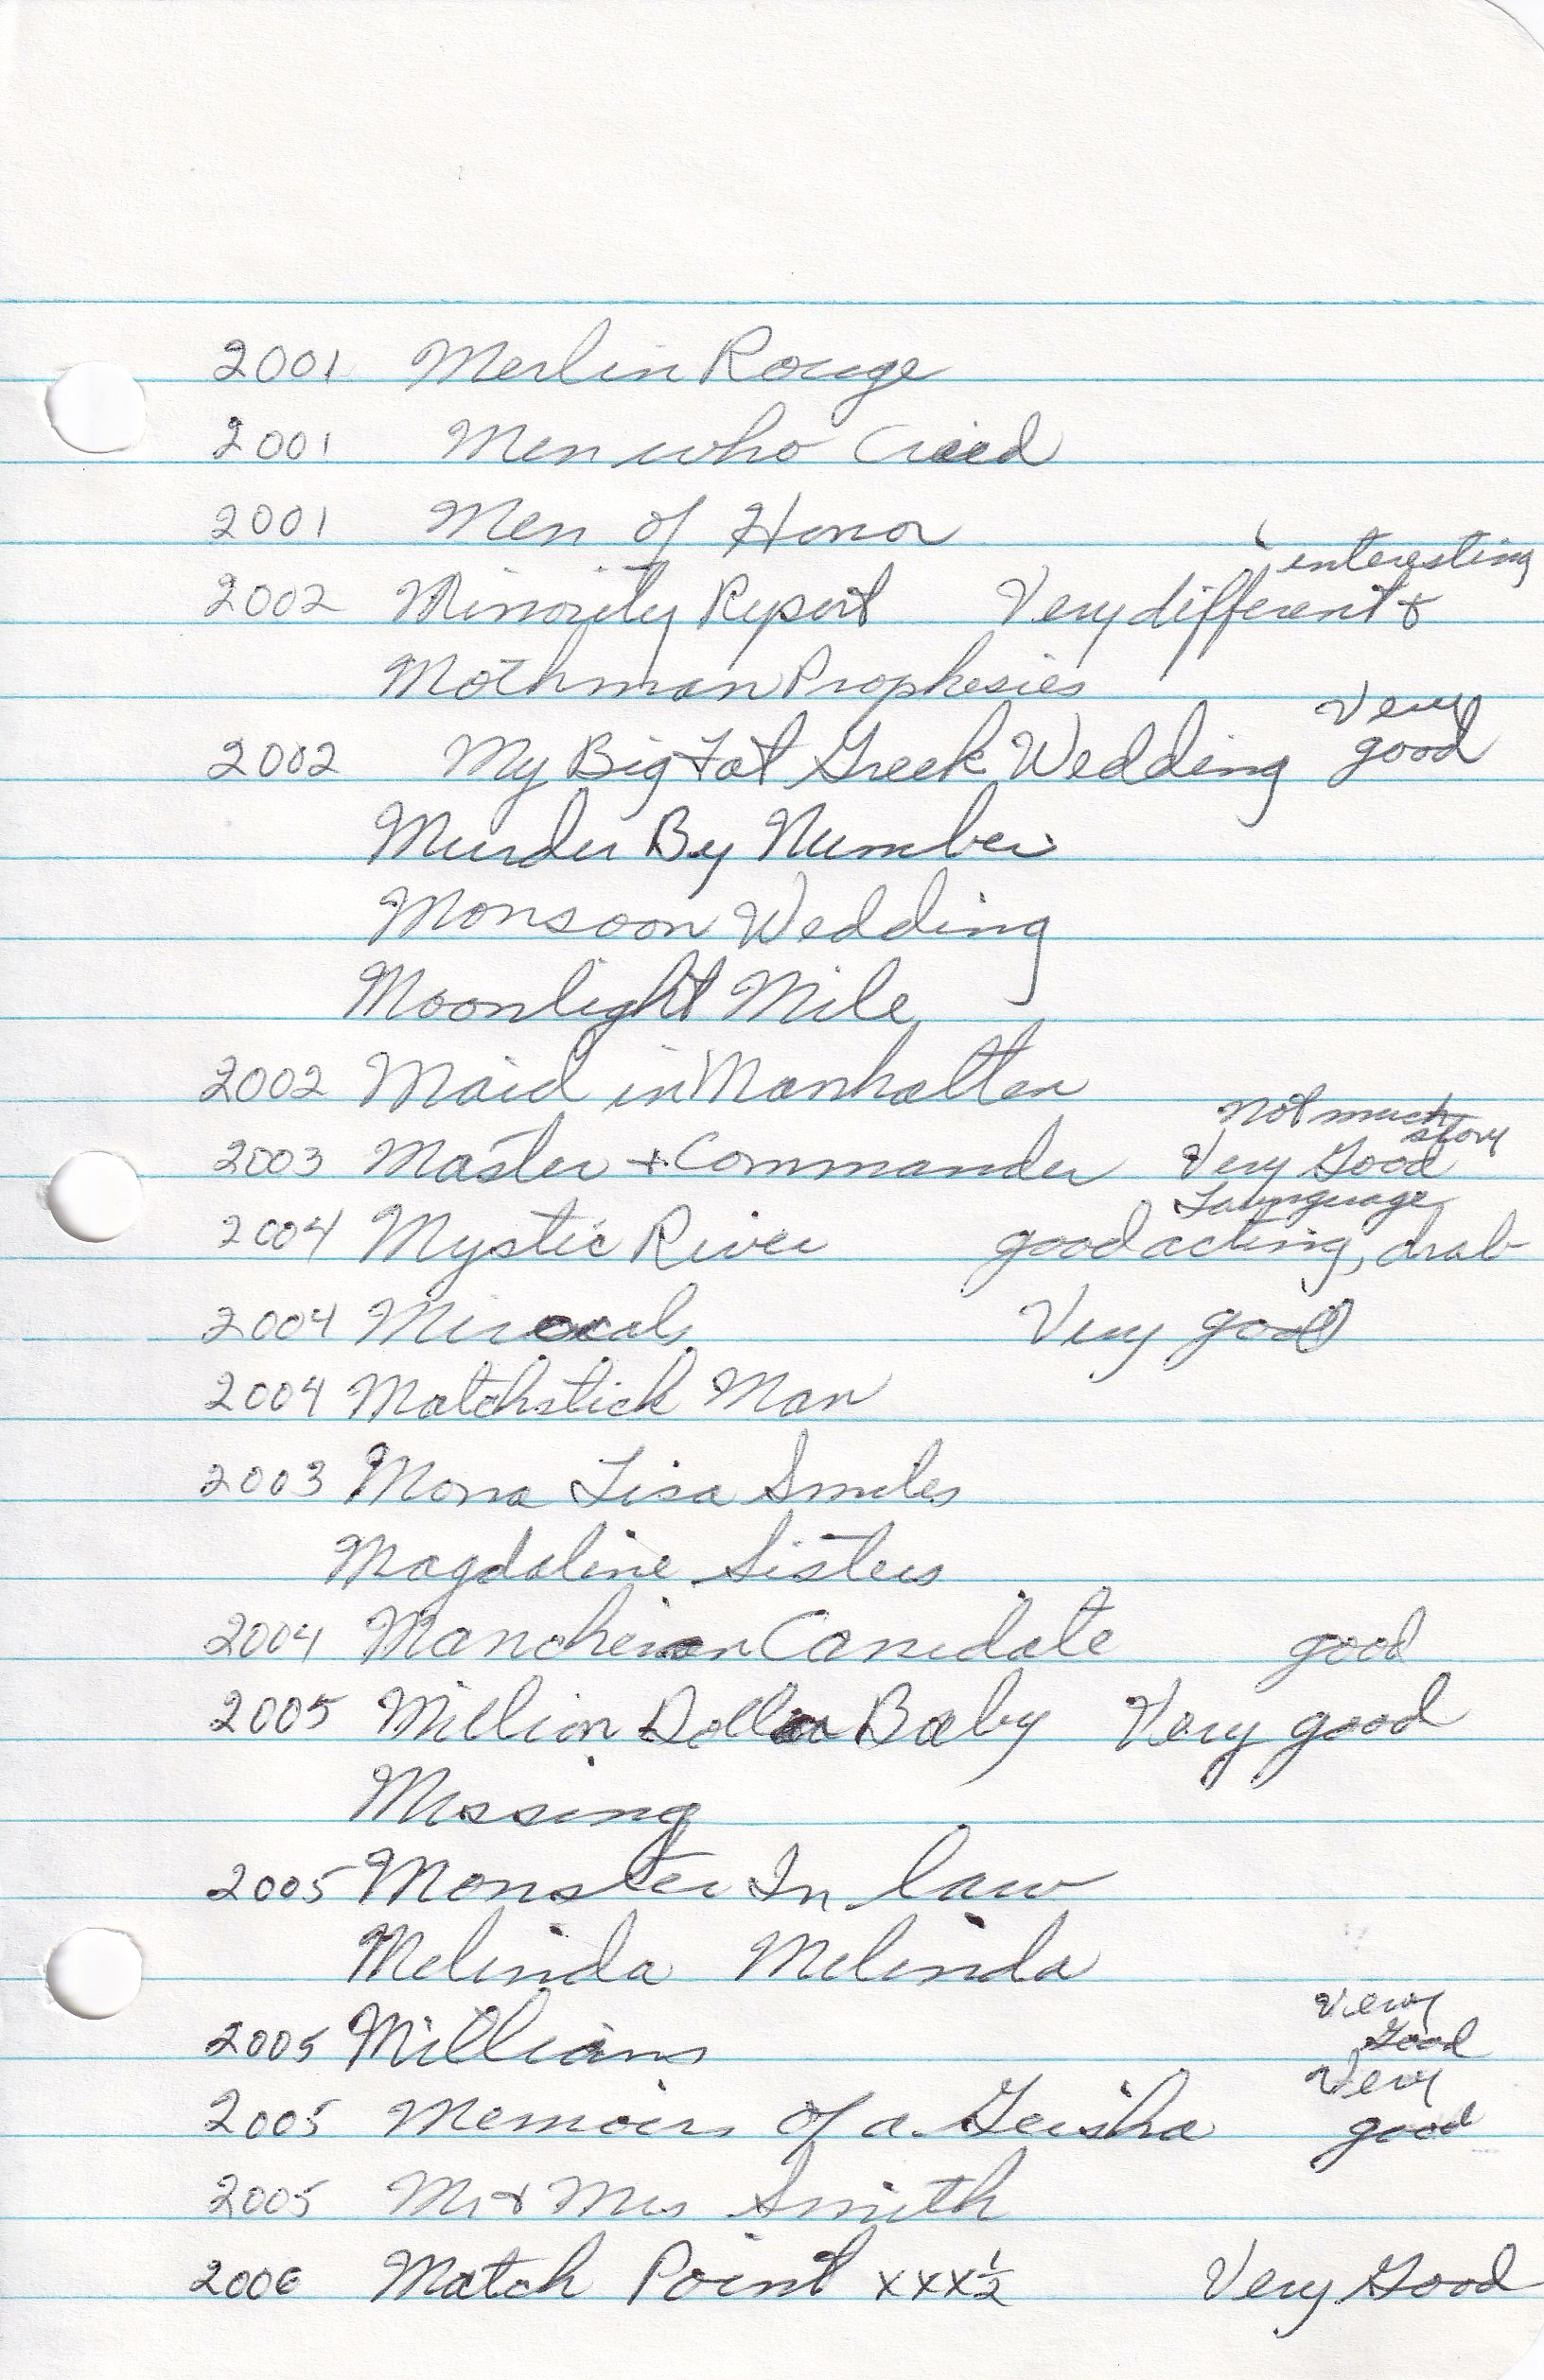 2001 Merlin Rouge
2001 Men who Cried
2001 Men of Honor
interesting
2002 Minority Report Very different +
Mothman Prophesies
Very
2002 My Big Fat Greek Wedding good
Murder By Number
Monsoon Wedding
Moonlight Mile
2002 Maid in Manhatten
Not much
story
2003 Master + Commander Very Good
Language
2004 Mystic River good acting, drab
2004 Very good
2004 Matchstick Man
2003 Mona Lisa Smiles
Magdaline Sisters
2004 Canidate good
2005 Million Dollar Baby Very good
Missing
2005 Monster In law
Melinda Melinda
Very
2005 Millians Good
Very
2005 Memoirs of a Geisha good
2005 Mr + Mrs Smith
2006 Match Point xxx½ Very Good